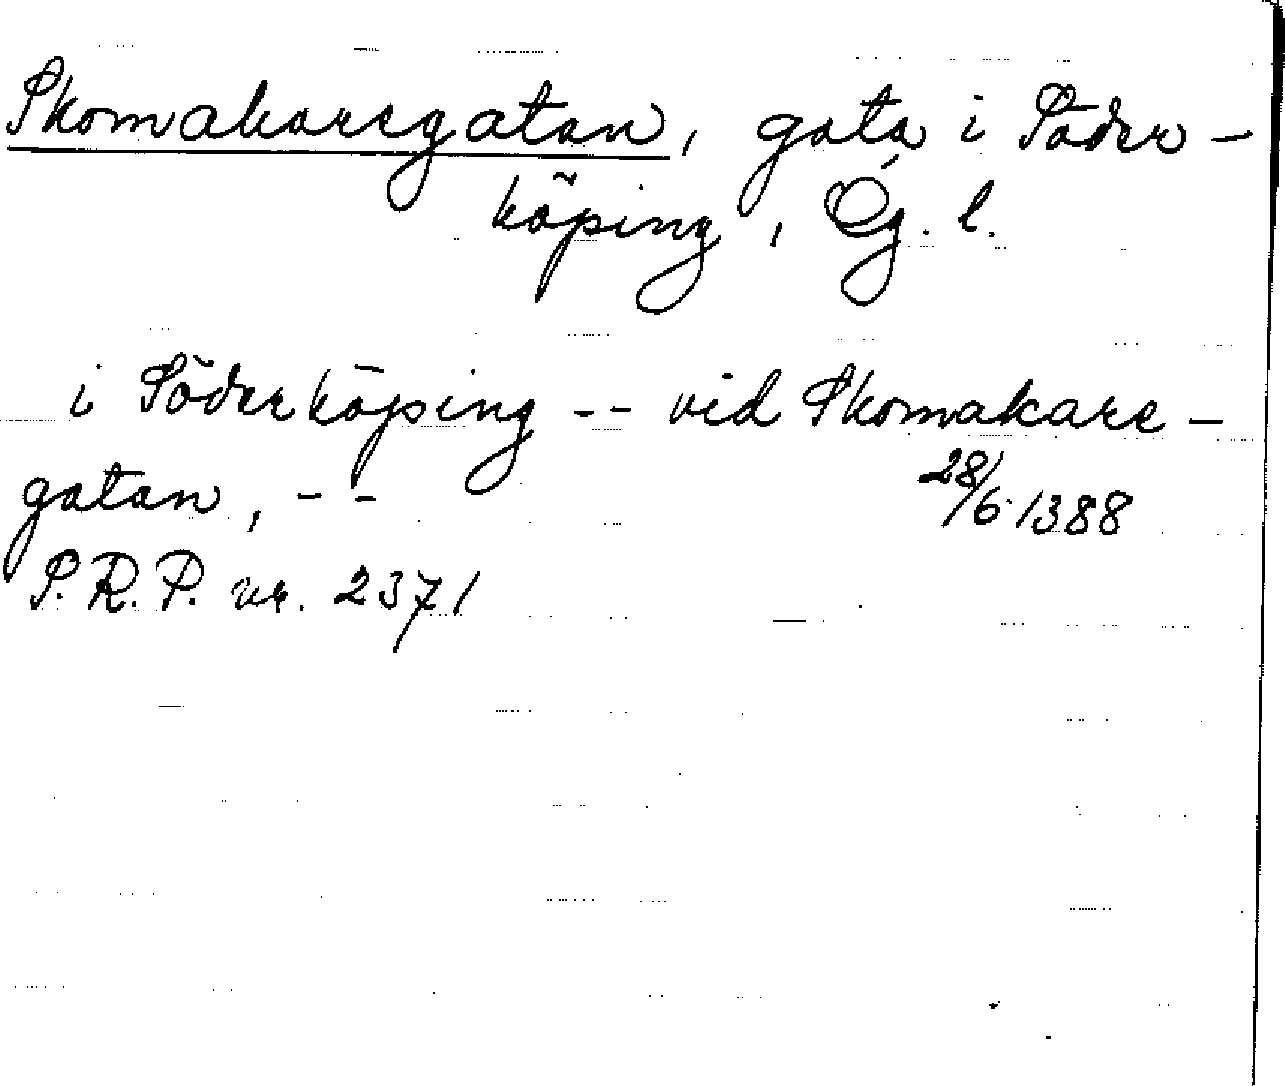 Skomakaregatan, gata i Söder-
köping, Ög. l.
i Söderköping -- vid Skomakare-
gatan, -- 28/6 1388
S.R.P. nr. 2371